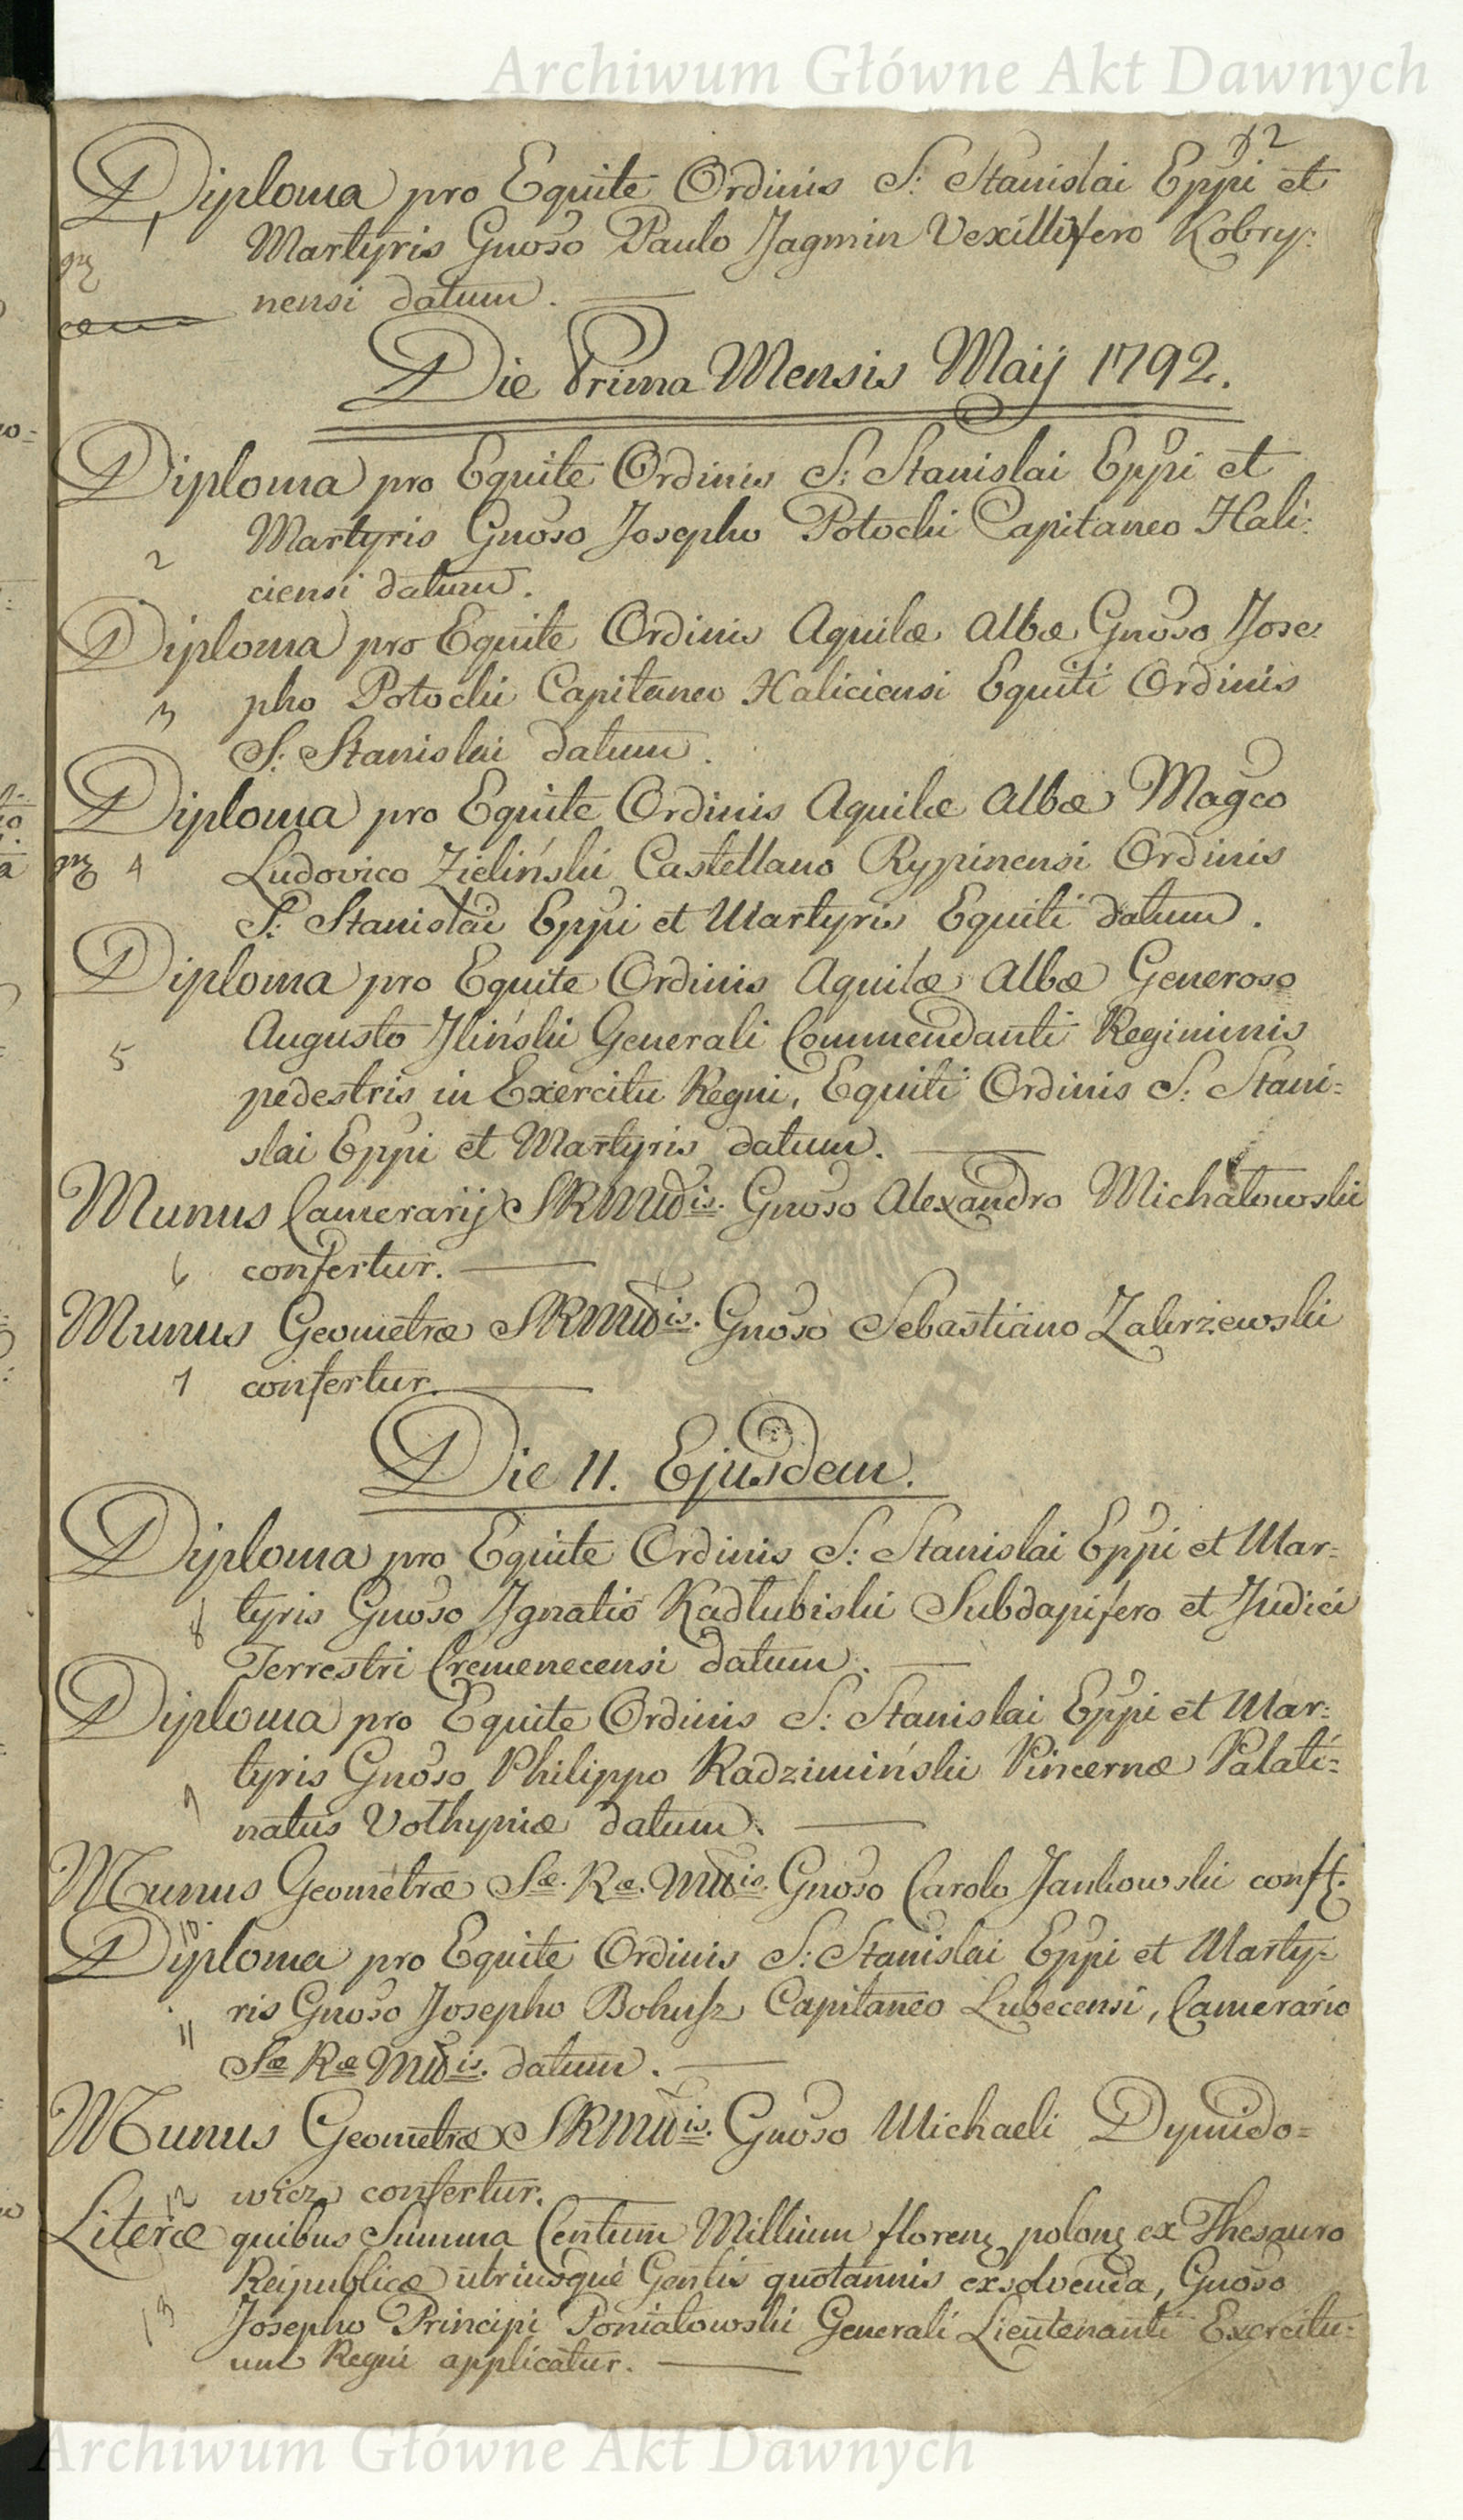 Archiwum Główne Akt Dawnych
Diploma pro Equite Ordinis S: Stanislai Eppi et
1 Martyris Gnoso Paulo Jagmin Vexillifero Kobry:
nensi datum.
Die Prima Mensis Maij 1792.
Diploma pro Equite Ordinis S: Stanislai Eppi et
Martyris Gnoso Josepho Potocki Capitaneo Hali:
2 ciensi datum.
Diploma pro Equite Ordinis Aquilæ Albæ Gnoso Jose:
3 pho Potocki Capitaneo Haliciensi Equiti Ordinis
S: Stanislai datum.
Diploma pro Equite Ordinis Aquilæ Albæ Magco
4 Ludovico Zieliński Castellano Rypinensi Ordinis
S: Stanislai Eppi et Martyris Equiti datum.
Diploma pro Equite Ordinis Aquilæ Albæ Generoso
5 Augusto Jliński Generali Commendanti Regiminis
pedestris in Exercitu Regni, Equiti Ordinis S: Stani=
slai Eppi et Martyris datum.
Munus Camerarij SRMttis. Gnoso Alexandro Michałowski
6 confertur.
Munus Geometræ SRMttis. Gnoso Sebastiano Zakrzewski
7 confertur.
Die 11. Ejusdem.
Diploma pro Equite Ordinis S: Stanislai Eppi et Mar=
8 tyris Gnoso Jgnatio Kadłubiski Subdapifero et Judici
Terrestri Cremenecensi datum.
Diploma pro Equite Ordinis S: Stanislai Eppi et Mar:
9 tyris Gnoso Philippo Radzimiński Pincernæ Palati=
natus Volhyniæ datum.
Munus Geometræ Sæ. Ræ. Mttis. Gnoso Carolo Jankowski conft.
10
Diploma pro Equite Ordinis S: Stanislai Eppi et Marty=
11 ris Gnoso Josepho Bohusz Capitaneo Lubecensi, Camerario
Sæ Ræ Mttis. datum.
Munus Geometræ SRMttis. Gnoso Michaeli Dymido=
12 wicz confertur.
Literæ quibus Summa Centum Millium floren polon ex Thesauro
Reipublicæ utriusque Gentis quotannis exsolvenda, Gnoso
13 Josepho Principi Poniatowski Generali Lieutenanti Exercitu=
um Regni applicatur.
Archiwum Główne Akt Dawnych